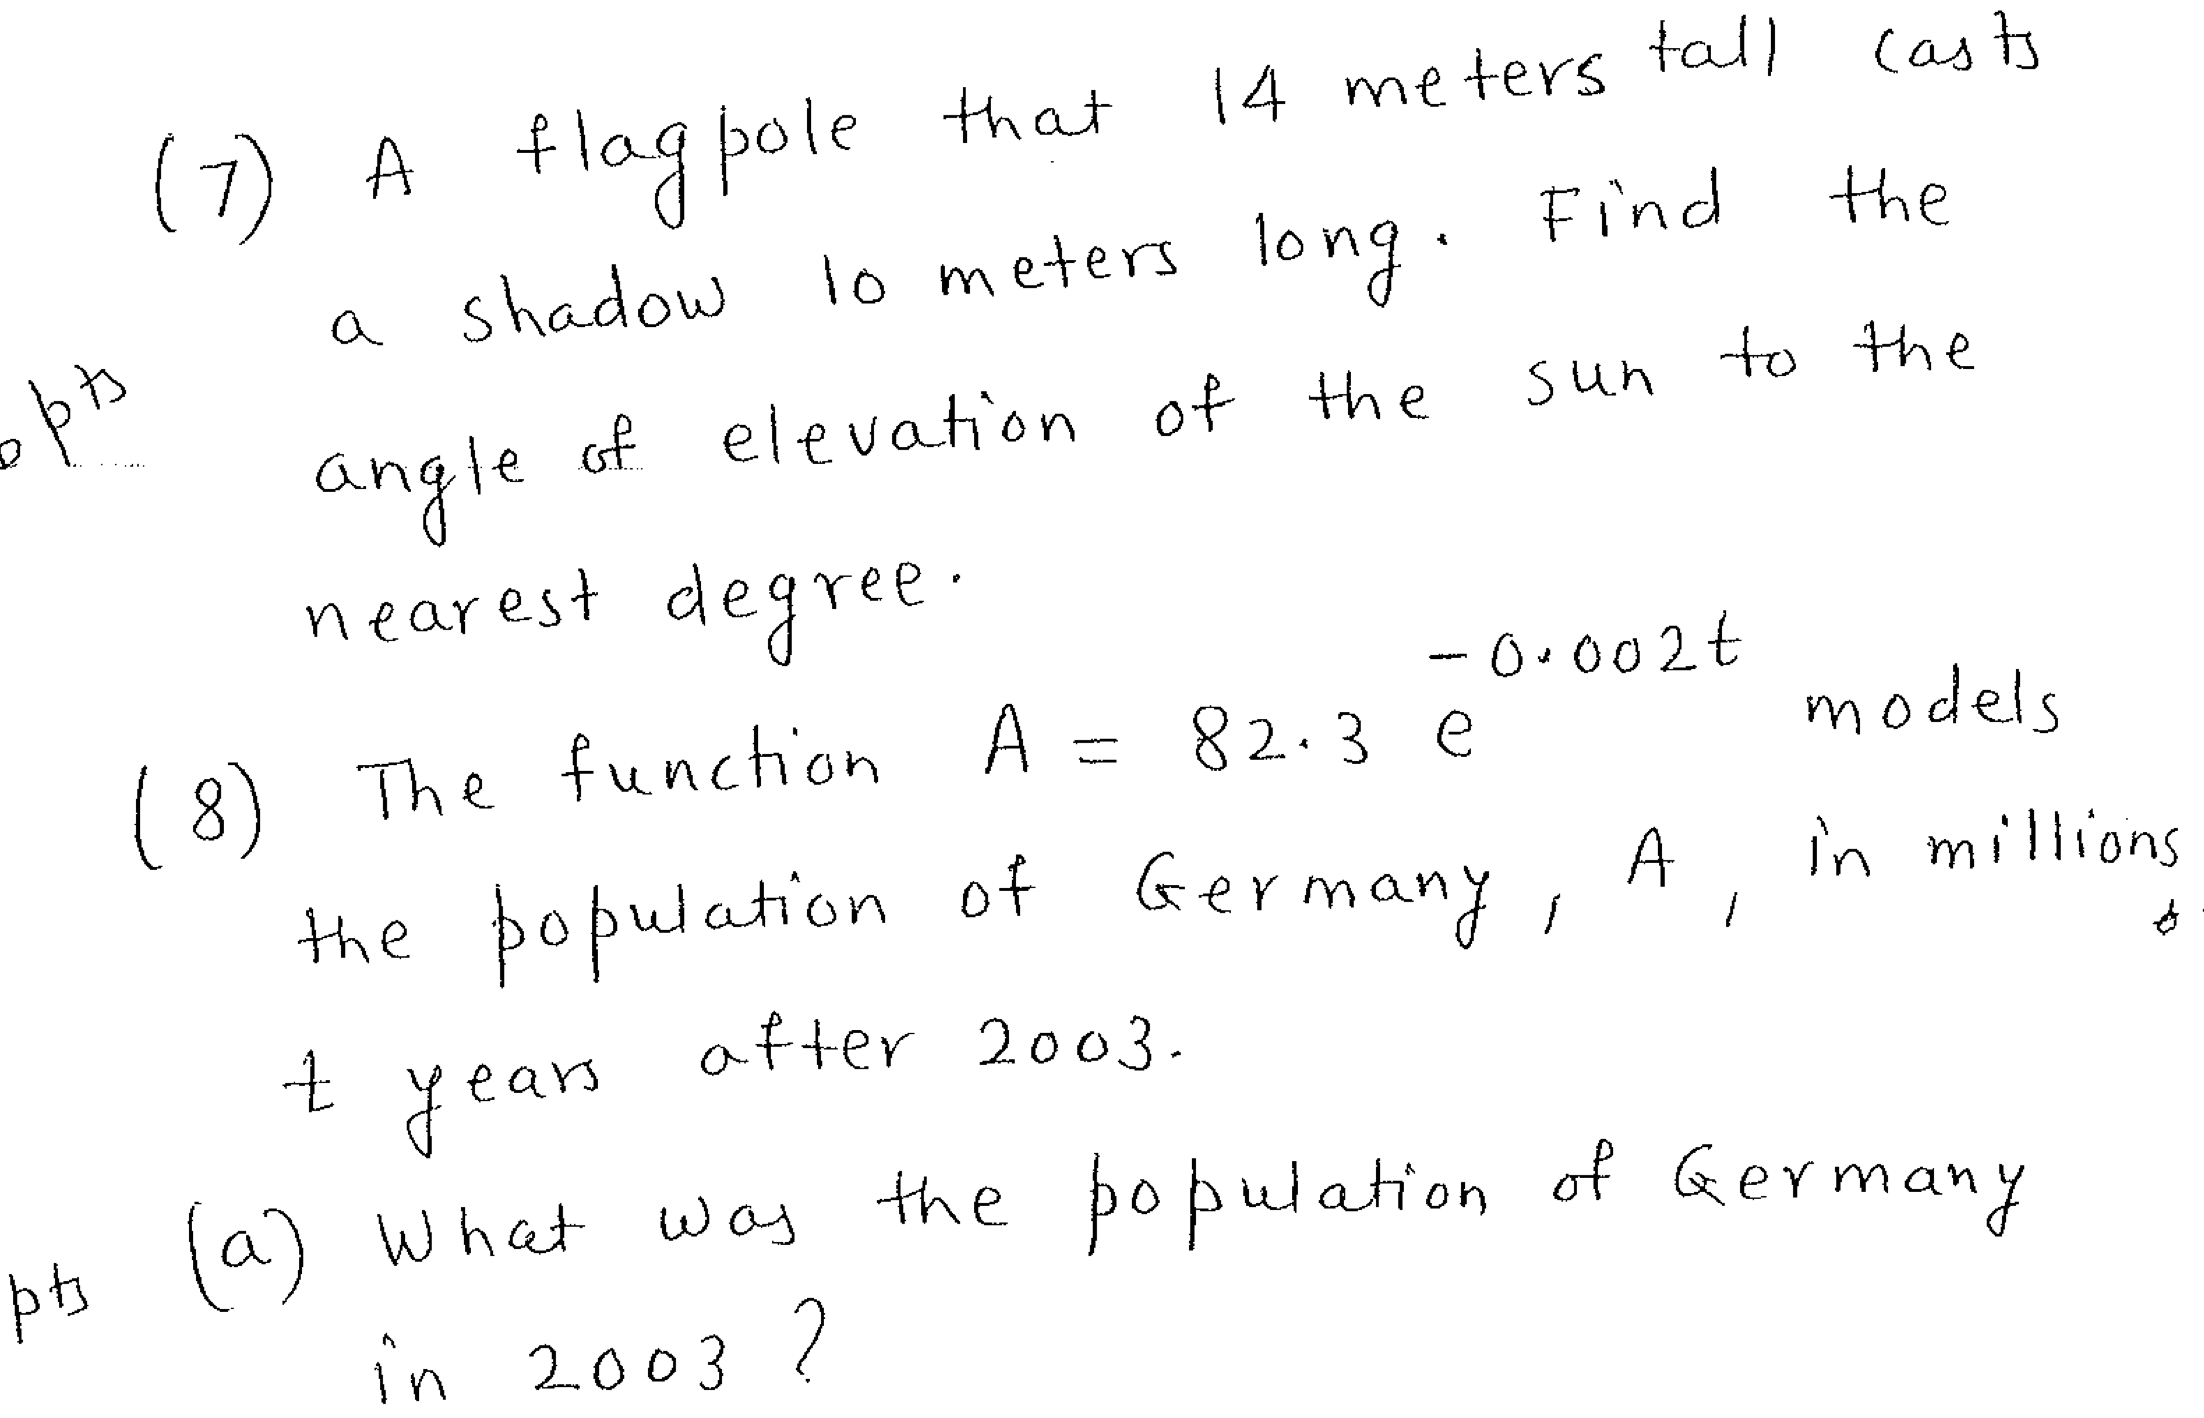 (7) A flagpole that 14 meters tall casts
a shadow 10 meters long. Find the
pts
angle of elevation of the sun to the
nearest degree.
(8) The function A = 82.3 e^-0.002t models
the population of Germany, A, in millions
t years after 2003.
(a) What was the population of Germany
pts
in 2003?